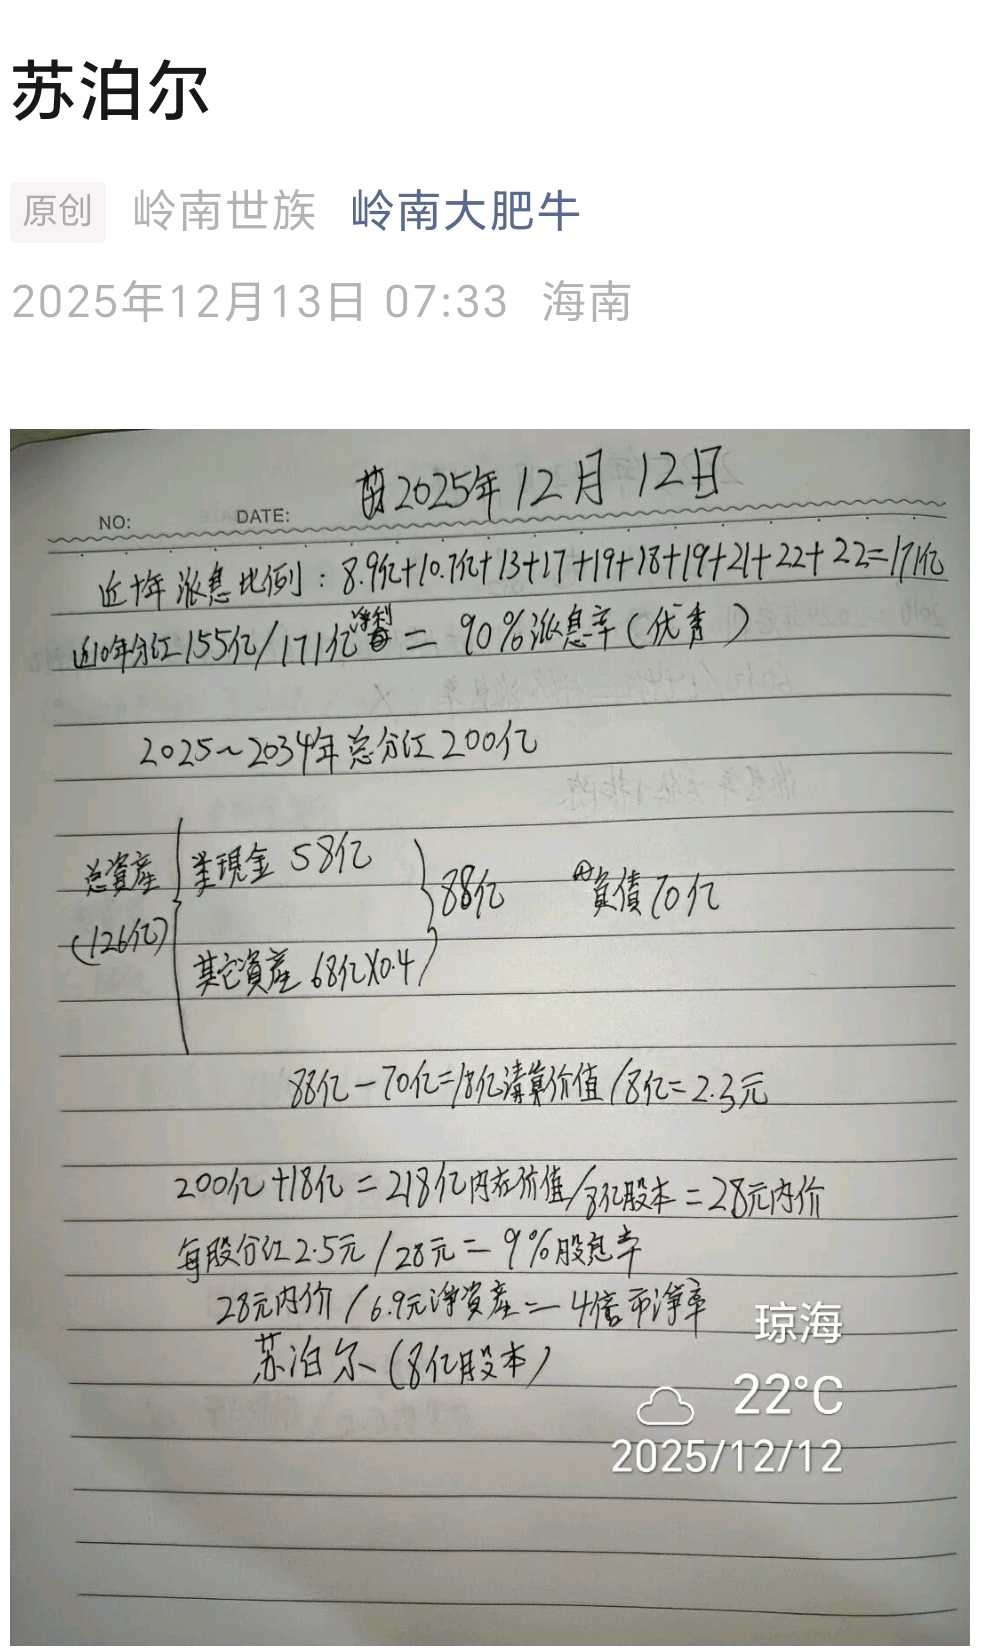 苏泊尔
原创 岭南世族 岭南大肥牛
2025年12月13日 07:33 海南
2025年12月12日
NO: DATE:
近十年派息比例：8.9亿+10.7亿+13+17+19+18+19+21+22+22=171亿
近10年分红155亿/171亿净利=90%派息率(优秀)
2025~2034年总分红200亿
总資産 类現金 58亿 88亿 负債70亿
(126亿)
其它資産 68亿X0.4
88亿-70亿=18亿清算价值/8亿=2.3元
200亿+18亿=218亿内在价值/8亿股本=28元内价
每股分红2.5元/28元=9%股息率
28元内价/6.9元净資産=4倍市净率
苏泊尔(8亿股本)
琼海
22°C
2025/12/12